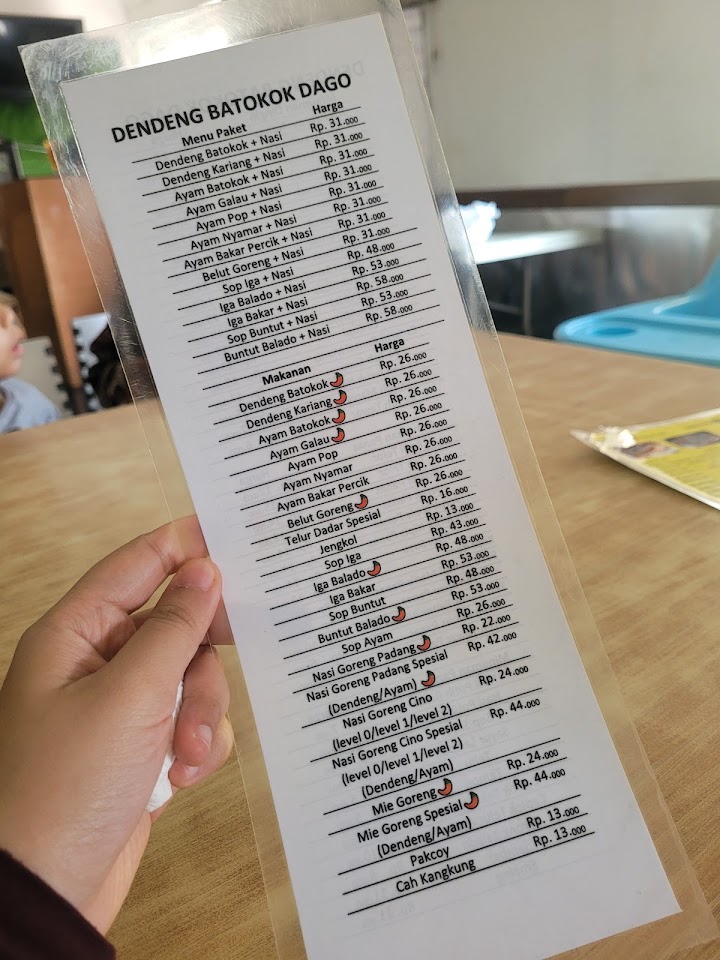 DENDENG BATOKOK DAGO
Menu Paket Harga
Dendeng Batokok + Nasi Rp. 31.000
Dendeng Kariang + Nasi Rp. 31.000
Ayam Batokok + Nasi Rp. 31.000
Ayam Galau + Nasi Rp. 31.000
Ayam Pop + Nasi Rp. 31.000
Ayam Nyamar + Nasi Rp. 31.000
Ayam Bakar Percik + Nasi Rp. 31.000
Belut Goreng + Nasi Rp. 31.000
Sop Iga + Nasi Rp. 48.000
Iga Balado + Nasi Rp. 53.000
Iga Bakar + Nasi Rp. 58.000
Sop Buntut + Nasi Rp. 53.000
Buntut Balado + Nasi Rp. 58.000
Makanan Harga
Dendeng Batokok Rp. 26.000
Dendeng Kariang Rp. 26.000
Ayam Batokok Rp. 26.000
Ayam Galau Rp. 26.000
Ayam Pop Rp. 26.000
Ayam Nyamar Rp. 26.000
Ayam Bakar Percik Rp. 26.000
Belut Goreng Rp. 26.000
Telur Dadar Spesial Rp. 16.000
Jengkol Rp. 13.000
Sop Iga Rp. 43.000
Iga Balado Rp. 48.000
Iga Bakar Rp. 53.000
Sop Buntut Rp. 48.000
Buntut Balado Rp. 53.000
Sop Ayam Rp. 26.000
Nasi Goreng Padang Rp. 22.000
Nasi Goreng Padang Spesial Rp. 42.000
(Dendeng/Ayam)
Nasi Goreng Cino Rp. 24.000
(level 0/level 1/level 2)
Nasi Goreng Cino Spesial Rp. 44.000
(level 0/level 1/level 2)
(Dendeng/Ayam)
Mie Goreng Rp. 24.000
Mie Goreng Spesial Rp. 44.000
(Dendeng/Ayam)
Pakcoy Rp. 13.000
Cah Kangkung Rp. 13.000